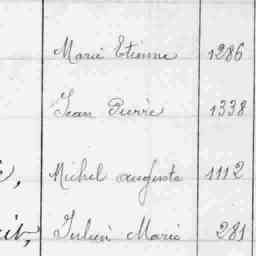 Marie Etienne 1286
Jean Pierre 1338
Michel auguste 1112
Julien Marie 281